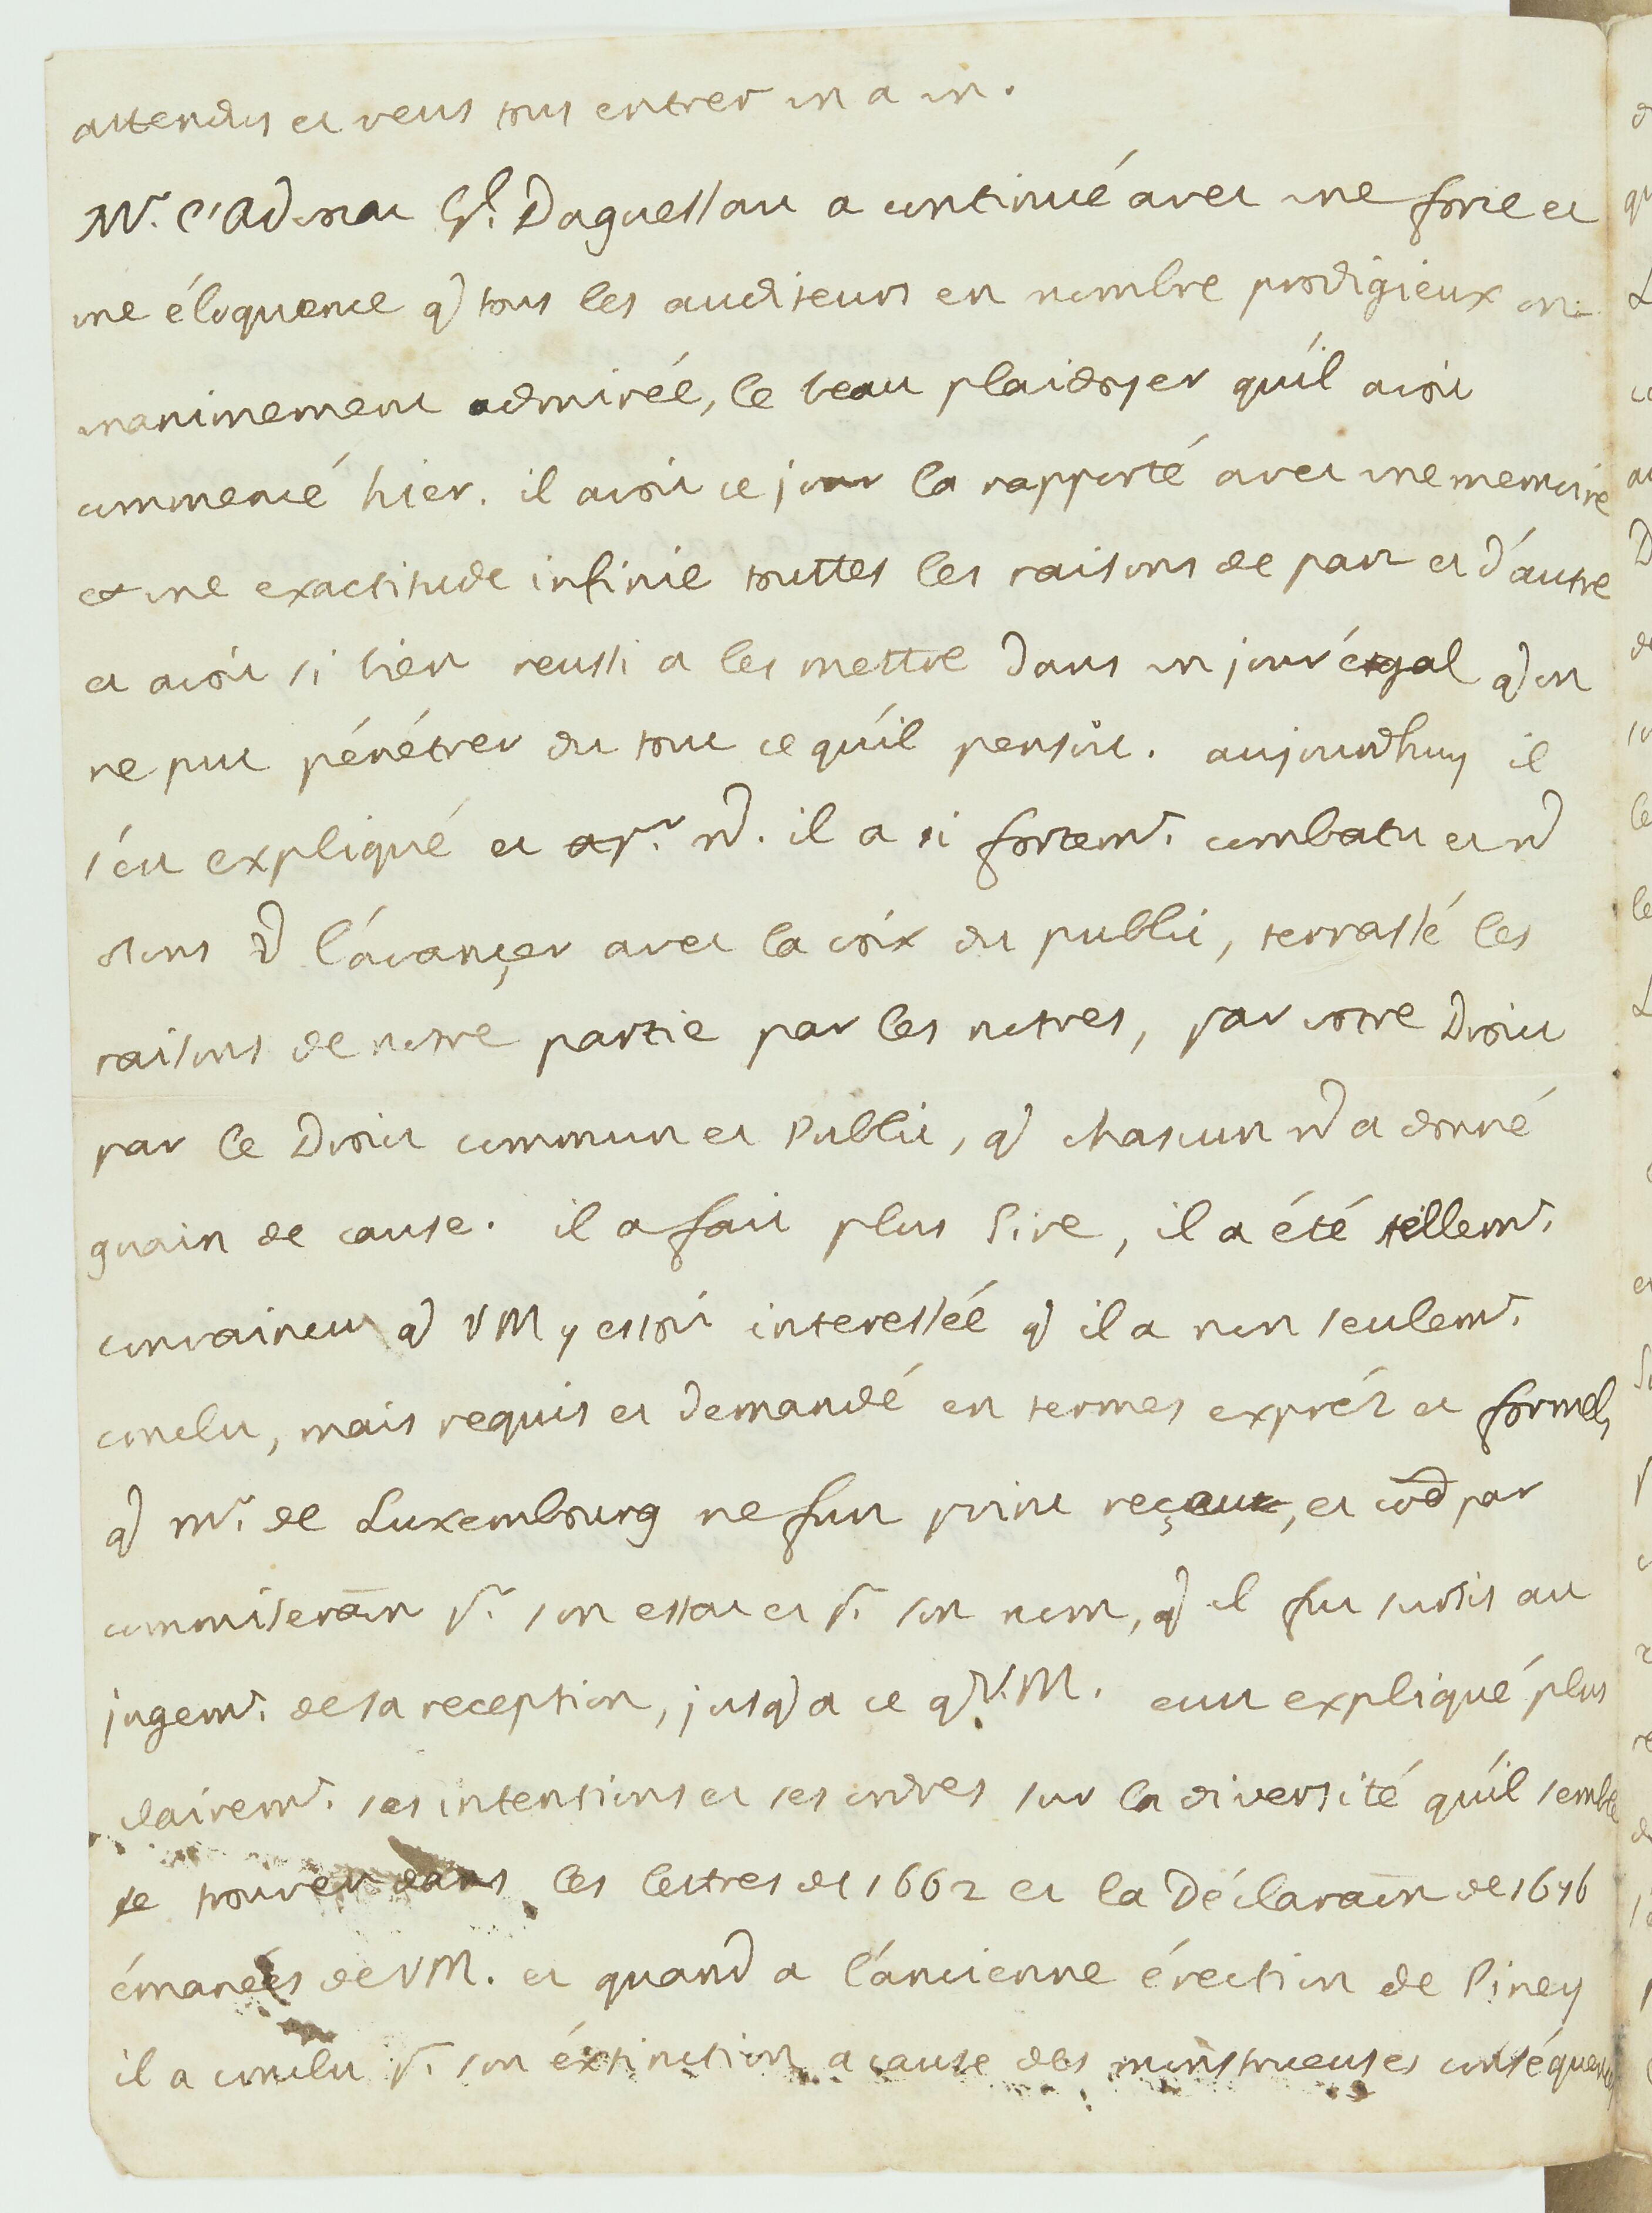 attendus et veus tous entrer un a un.
Mr. l'Advocat Gl. Daguesseau a continué avec une force et
une éloquence q) tous les auditeurs en nombre prodigieux on
unanimement admirée, le beau plaidoyer qu'il avoit
commencé hier. il avoit ce jour la rapporté avec une memoire
et une exactitude infinie touttes les raisons de part et d'autre
et avoit si bien reussi a les mettre dans un jour égal q) on
ne put pénétrer du tout ce qu'il pensoit. aujourdhuy il
s'est expliqué et apr. nd. il a si fortemt. combatu et nd
osons d l'avançer avec la voix du public, terrassé les
raisons de notre partie par les notres, par votre Droit
par le Droit commun et Public, q) chascun nd a donné
guain de cause. il a fait plus Sire, il a été tellemt.
convaincu q) VM y estoit interessée q) il a non seulemt.
conclu, mais requis et demandé en termes expréz et formels
q) mr. de Luxembourg ne fut point reçeu, et cõd par
commiseraõn pr. son estat et pr. son nom, q) il fut sursis au
jugemt. de sa reception, jusq) a ce q) V.M. eut expliqué plus
clairemt. ses intentions et ses ordres sur la diversité qu'il semble
se trouver dans les lettres de 1662 et la Déclaraõn de 1676
émanées de VM. et quand a l'ancienne érection de Piney
il a conclu pr. son éxtinction a cause des monstrueuses conséquences